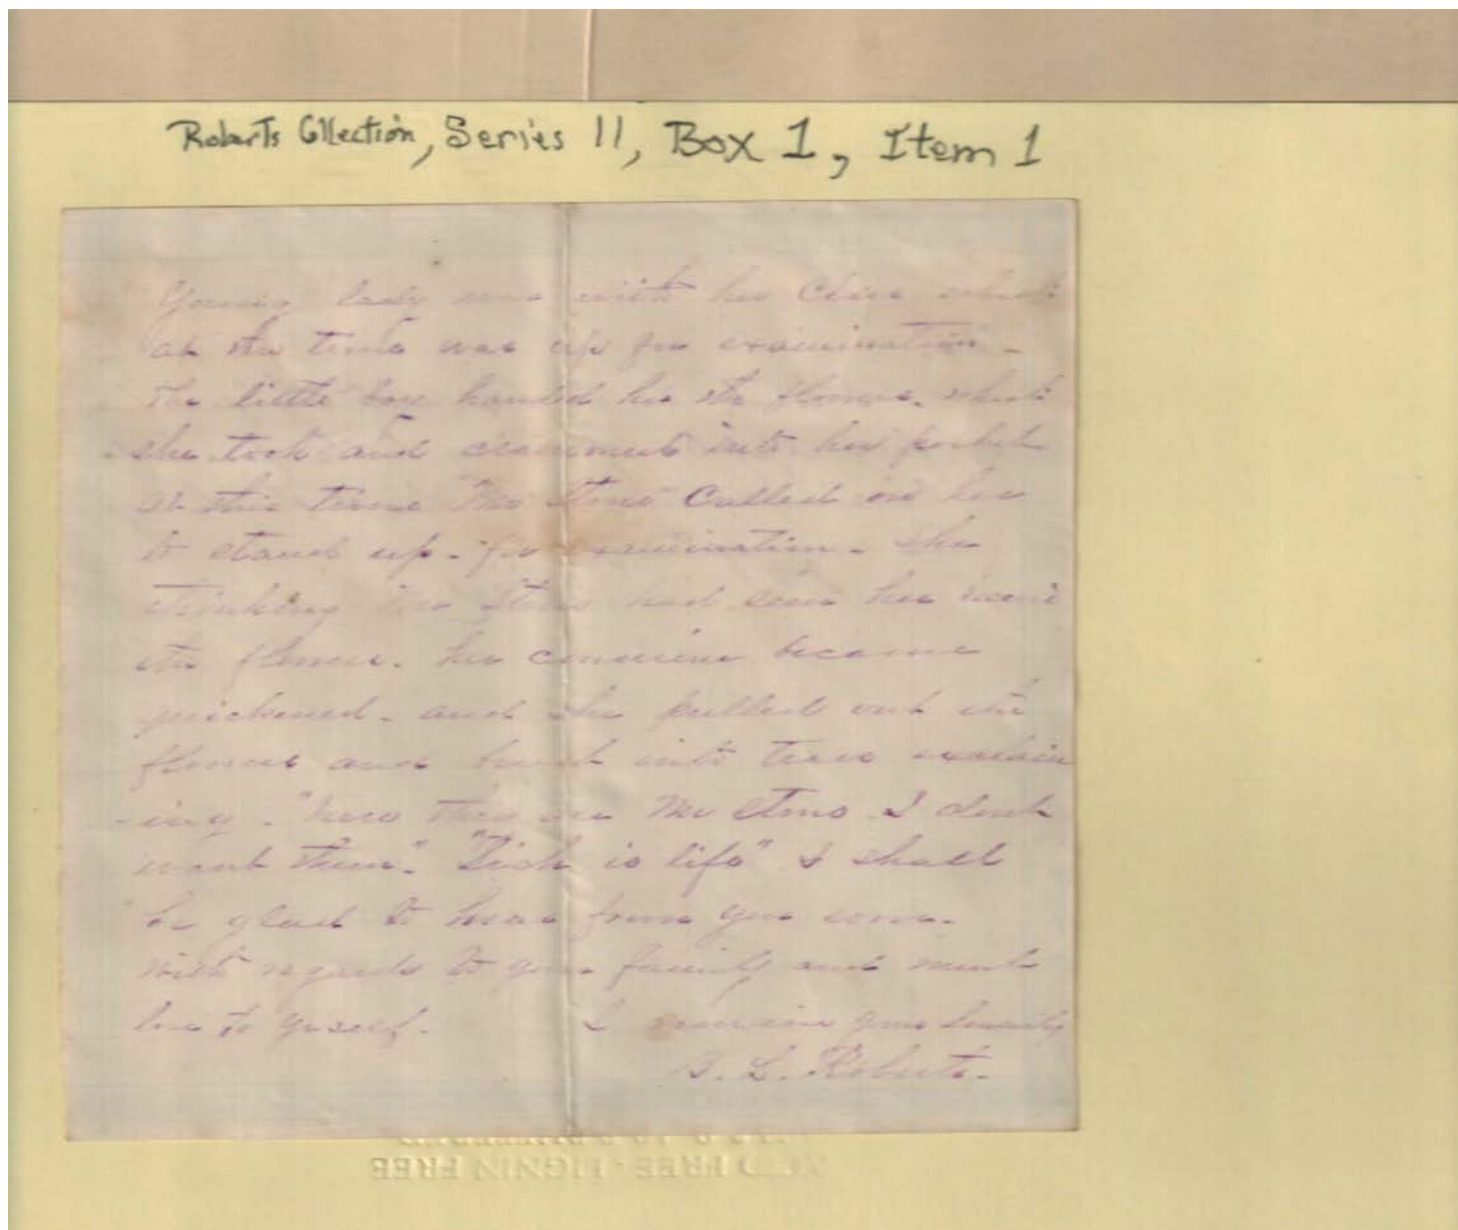 Roberts Collection, Series II, Box 1, Item 1
Young lady was with her Class which
at the time was up for examination -
The little boy handed her the flowers. which
she took and crammed into her pocket
at this time Mr Stone Called on her
to stand up - for examination - She
thinking Mr Stone had seen her receive
the flowers. her conscience became
quickened - and she pulled out the
flowers and burst into tears exclaim
-ing - "here they are Mr Stone I dont
want them". "Sich is life" I shall
be glad to hear from you soon.
with regards to your family and much
love to yoself. I remain yours sincerely
Roberts.
ACID FREE - LIGNIN FREE